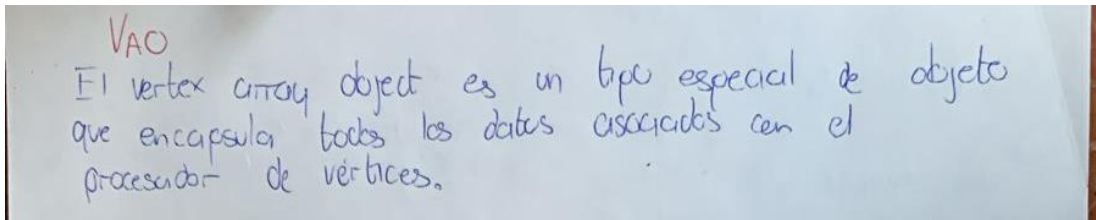 VAO
El vertex array object es un tipo especial de objeto
que encapsula todos los datos asociados con el
procesador de vértices.